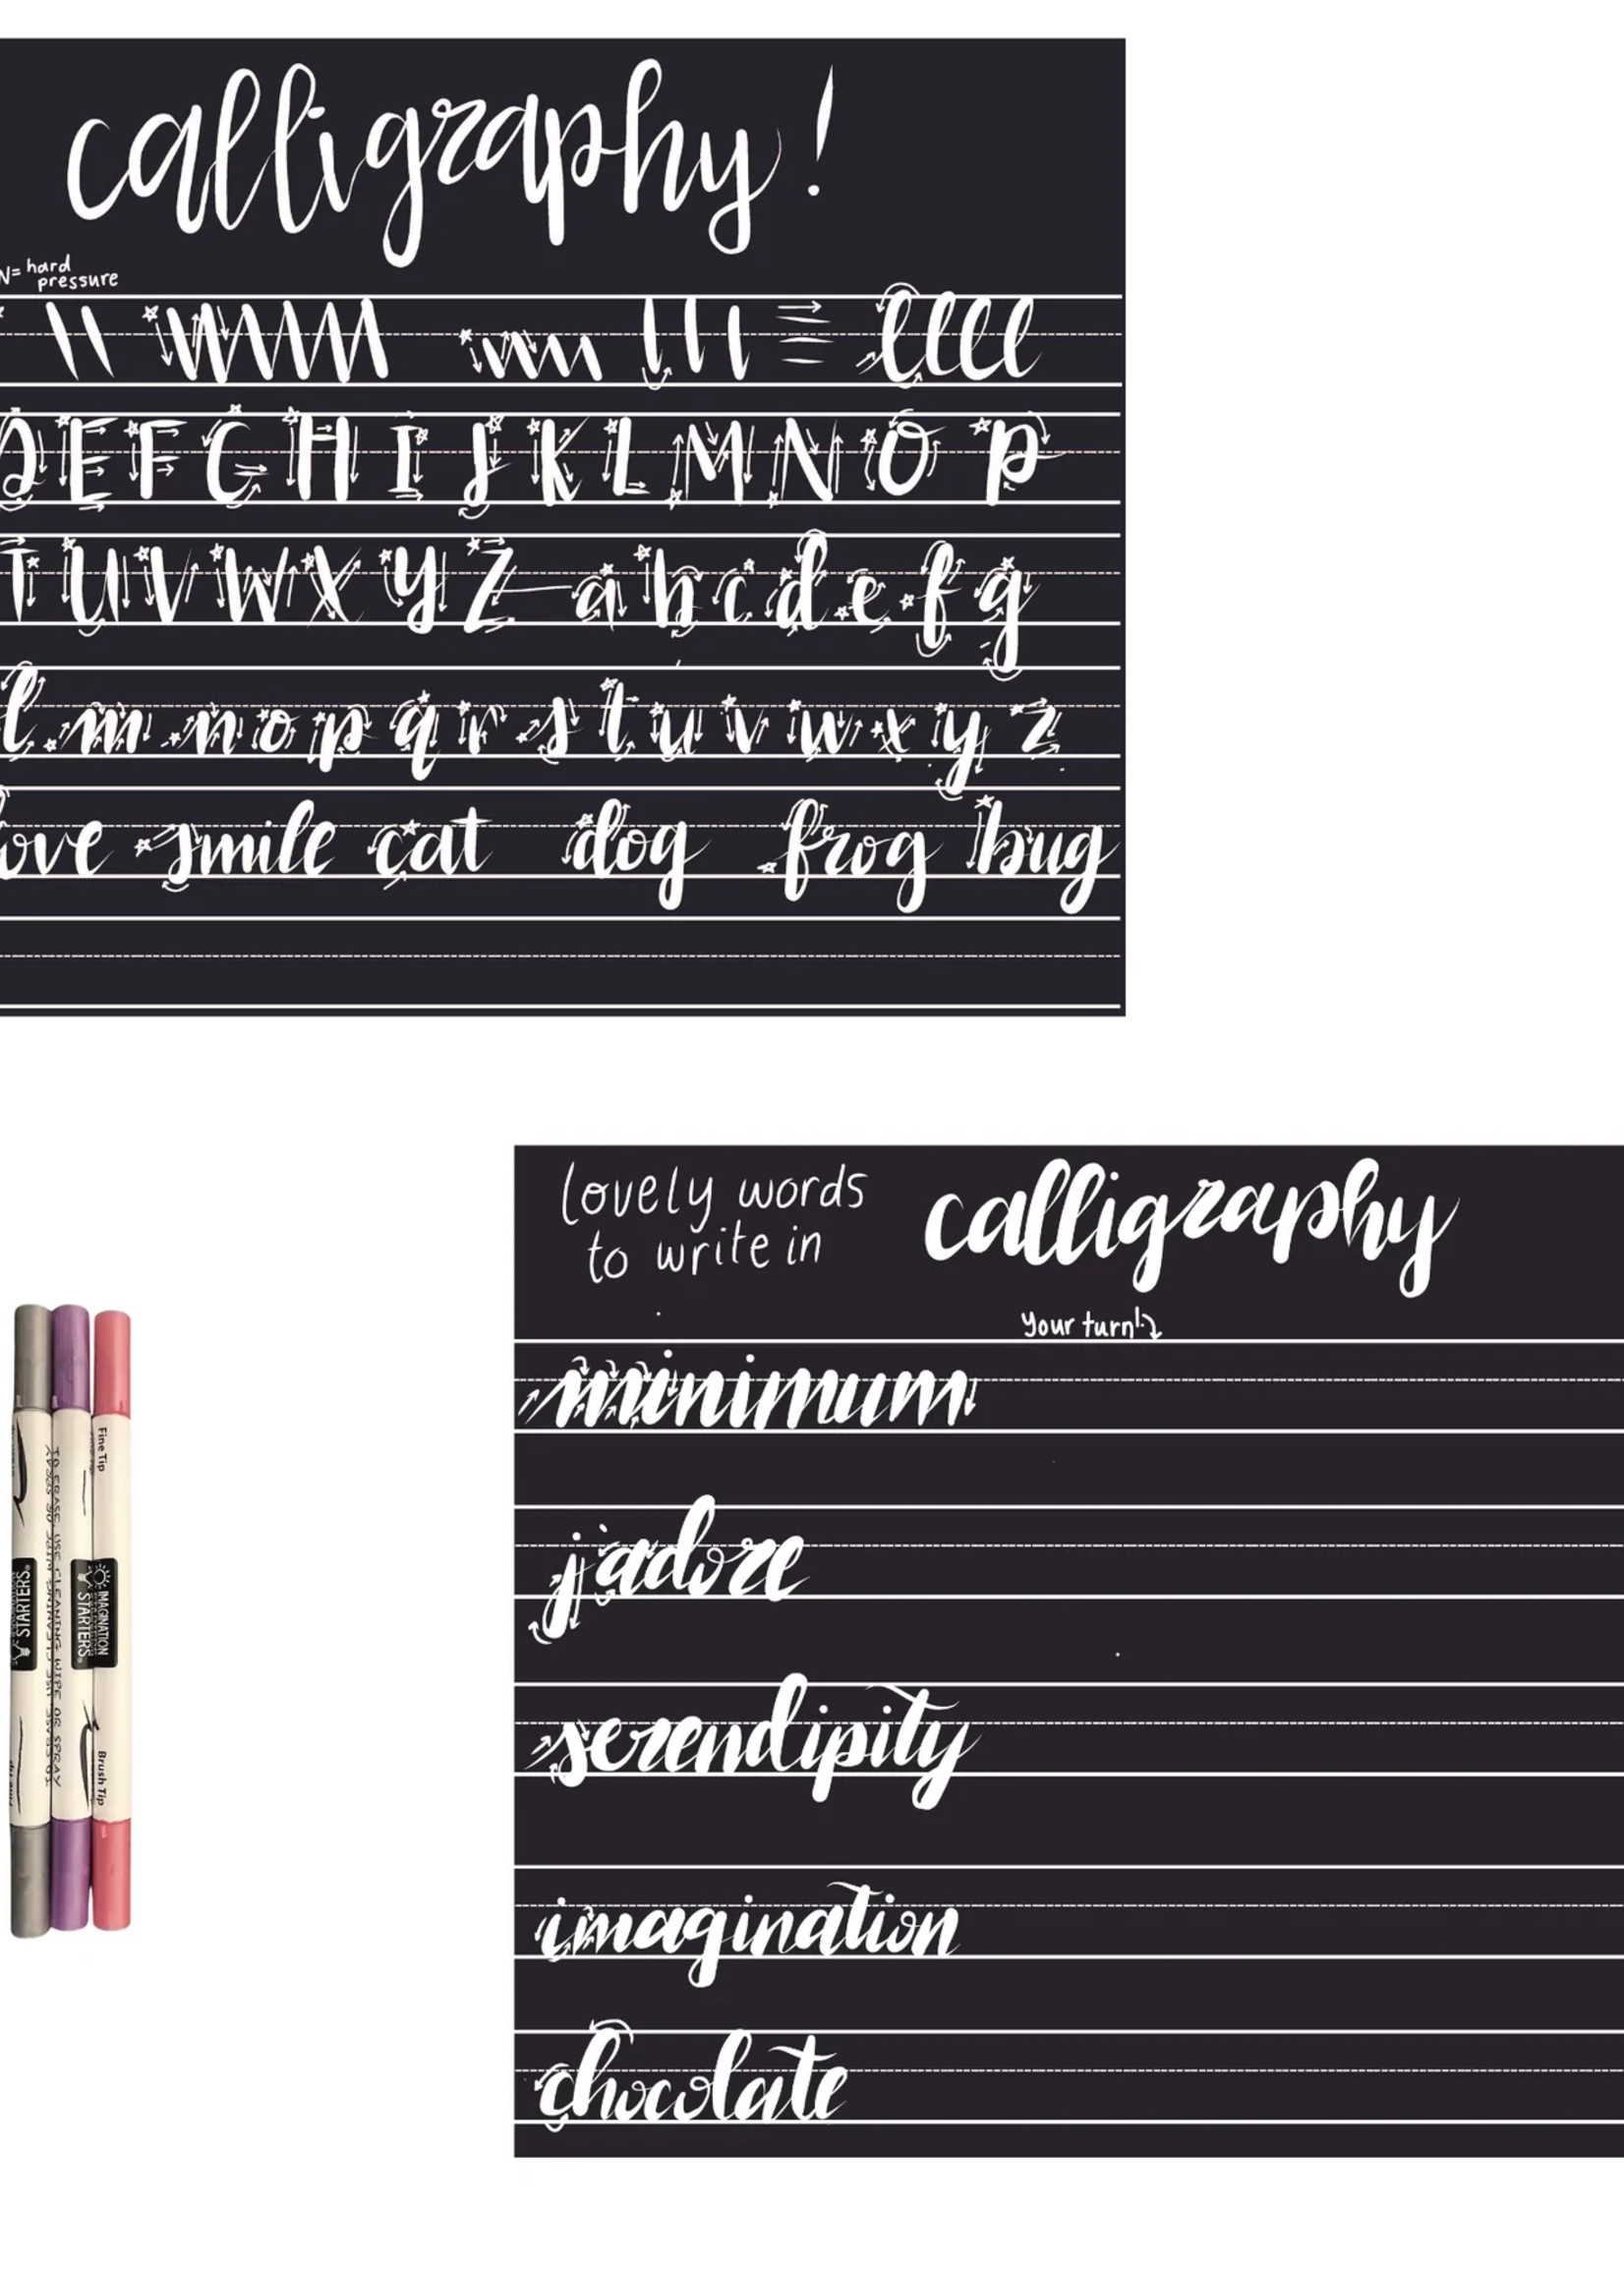 calligraphy!
N= hard
pressure
D E F G H I J K L M N O P
T U V W X Y Z a b c d e f g
l m n o p q r s t u v w x y z
ove smile cat dog frog bug
lovely words
to write in
calligraphy
your turn!
minimum
j'adore
serendipity
imagination
chocolate
Fine Tip
IMAGINATION
STARTERS
Brush Tip
TO ERASE, USE CLEANING WIPE OR SPRAY
STARTERS
STARTERS
Fine Tip